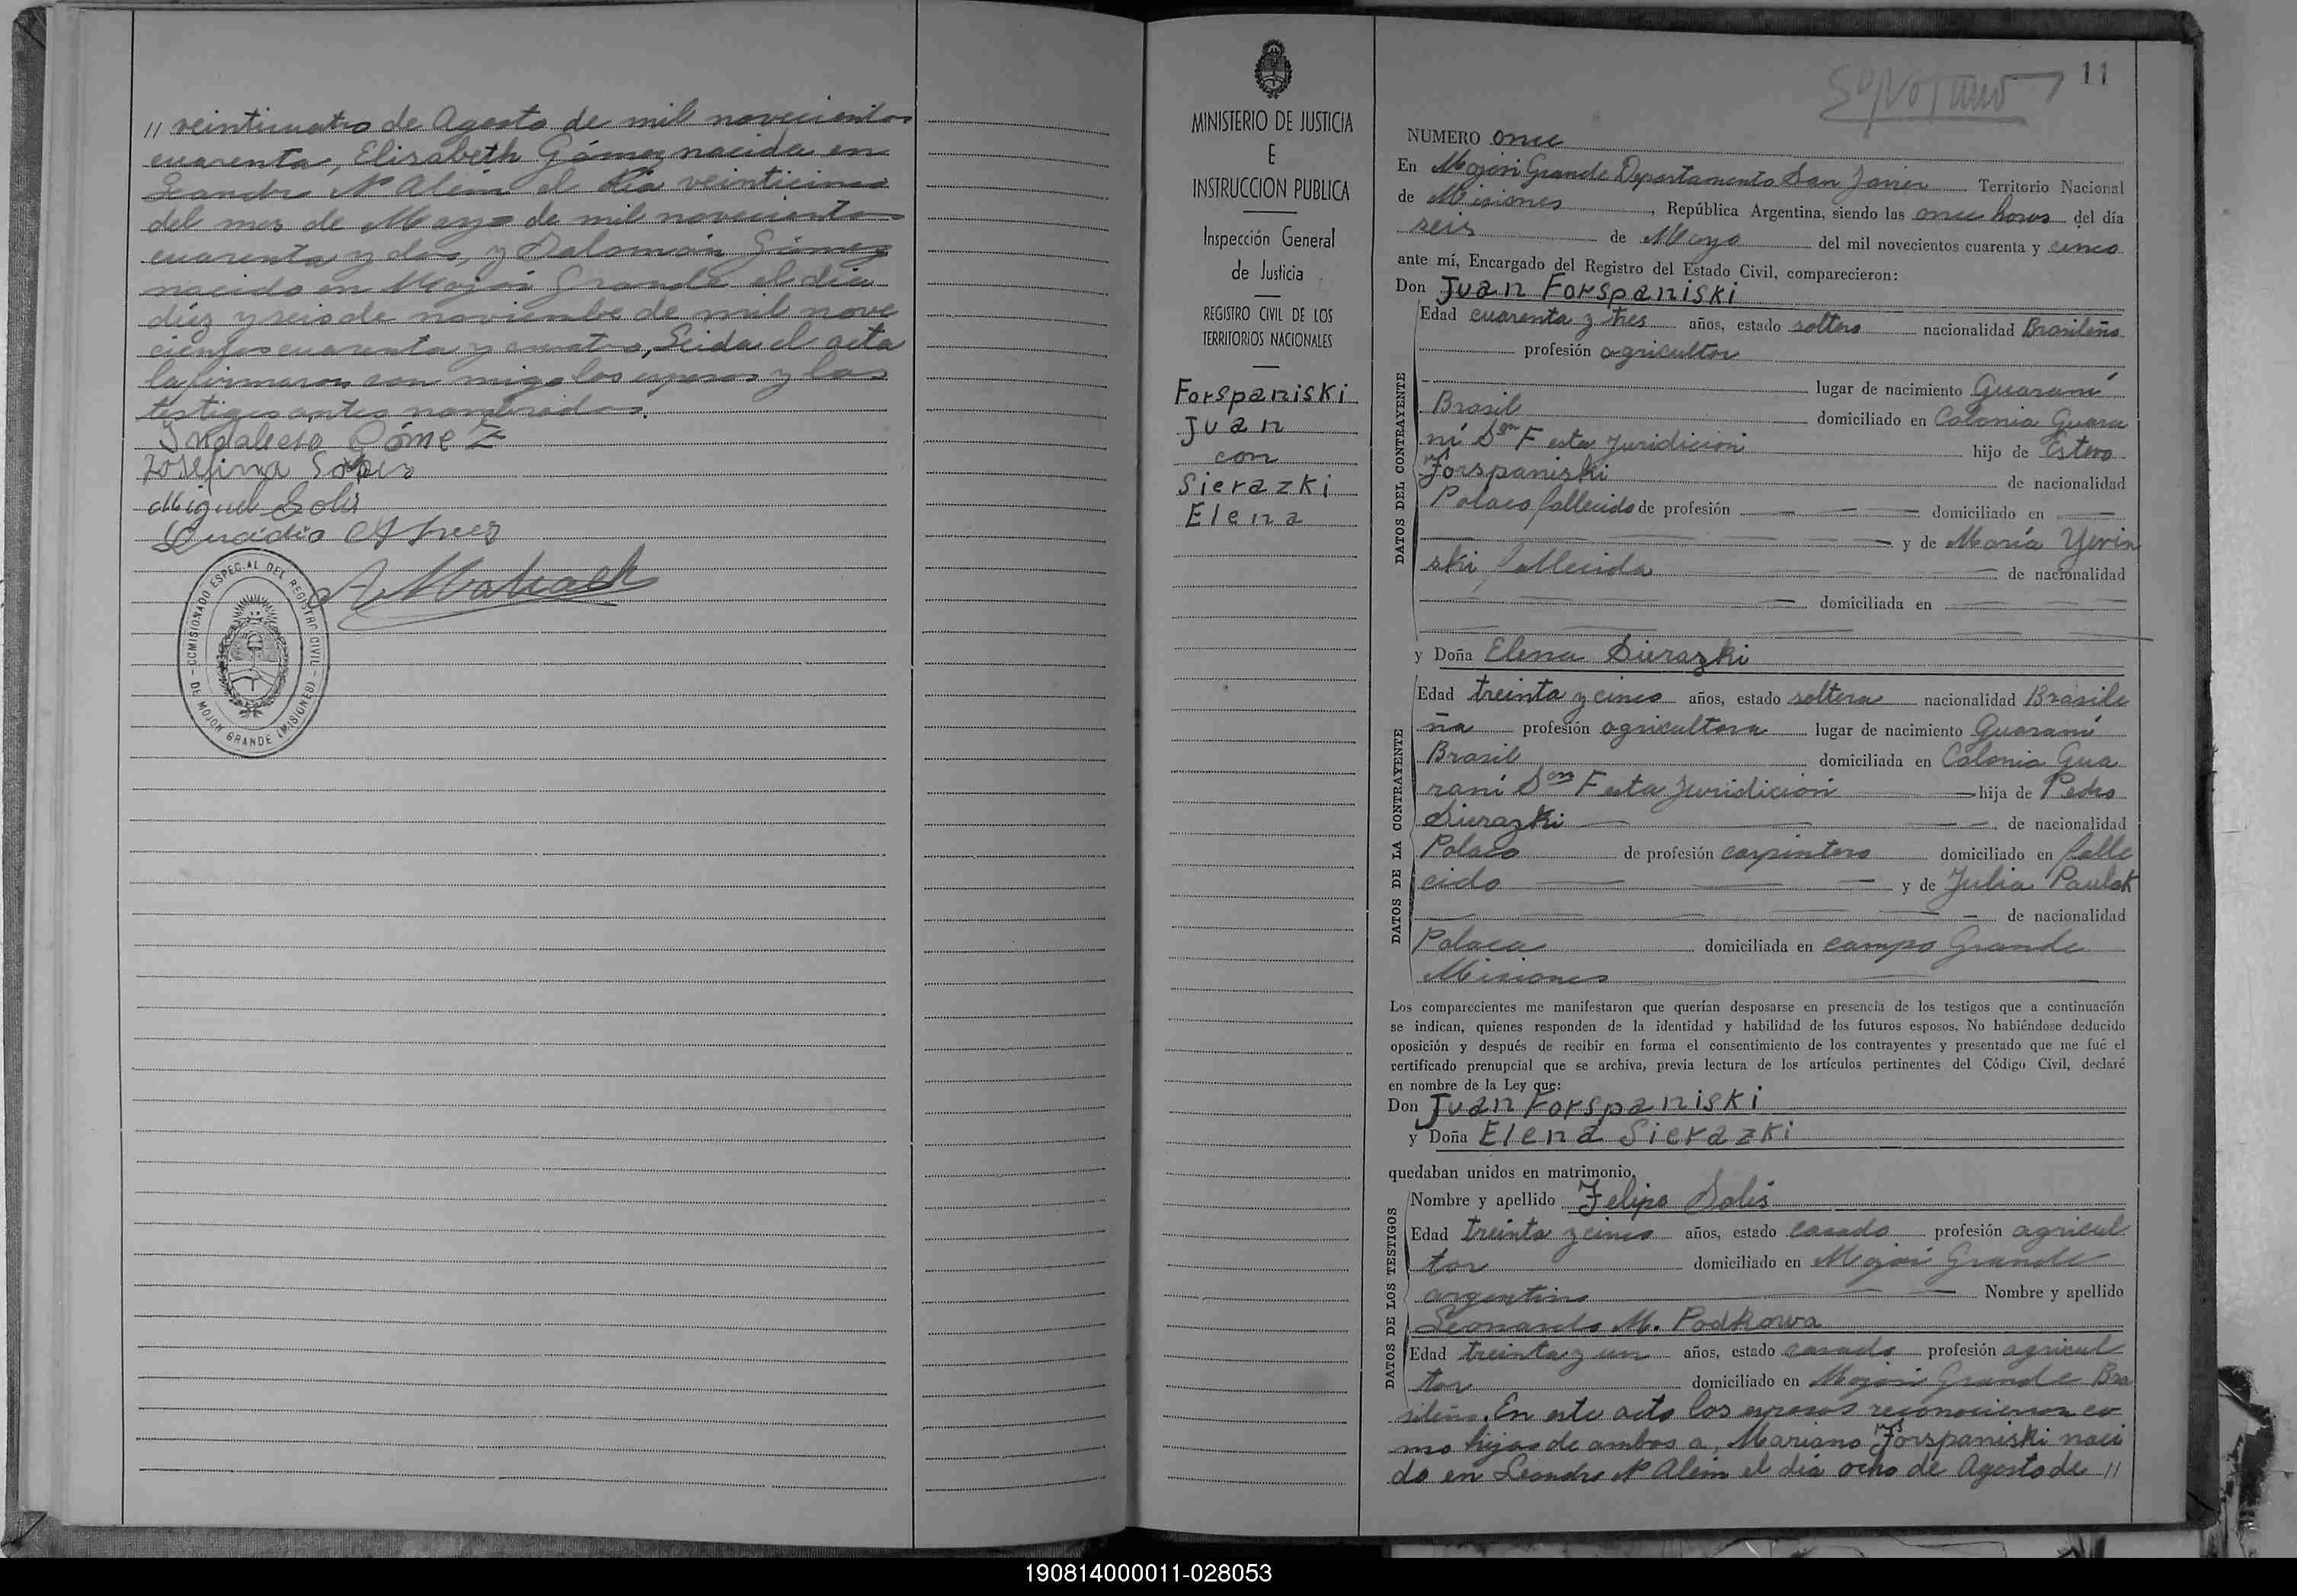 // veinticuatro de Agosto de mil novecientos
cuarenta, Elisabeth Gómez nacida en
Leandro N Alem el día veinticinco
del mes de Mayo de mil novecientos
cuarenta y dos, y Salomón Gómez
nacido en Mojón Grande el día
diez y seis de noviembre de mil nove
cientos cuarenta y cuatro, Leida el acta
la firmaron con migo los esposos y los
testigos antes nombrados.
Indalecio Gómez
Josefina
Miguel Solis
COMISIONADO ESPECIAL DEL REGISTRO CIVIL
DE MOJON GRANDE (MISIONES)
MINISTERIO DE JUSTICIA
E
INSTRUCCION PUBLICA
Inspección General
de Justicia
REGISTRO CIVIL DE LOS
TERRITORIOS NACIONALES
Forspaniski
Juan
con
Sierazki
Elena
11
NUMERO once
En Mojón Grande Departamento San Javier Territorio Nacional
de Misiones, República Argentina, siendo las once horas del día
seis de Mayo del mil novecientos cuarenta y cinco
ante mí, Encargado del Registro del Estado Civil, comparecieron:
Don Juan Forspaniski
DATOS DEL CONTRAYENTE
Edad cuarenta y tres años, estado soltero nacionalidad Brasileño
profesión agricultor
lugar de nacimiento Guaraní
Brasil domiciliado en Colonia Guara
ní Son F esta Juridición hijo de Estevo
Forspaniski de nacionalidad
Polaco fallecido de profesión — — — domiciliado en —
— — — — — y de María Yerin
ski fallecida — — de nacionalidad
— — — — domiciliada en — — —
y Doña Elena Sierazki
DATOS DE LA CONTRAYENTE
Edad treinta y cinco años, estado soltera nacionalidad Brasile
ña profesión agricultora lugar de nacimiento Guaraní
Brasil domiciliada en Colonia Gua
raní Son F esta Juridición — hija de Pedro
Sierazki — — — de nacionalidad
Polaco de profesión carpintero domiciliado en falle
cido — — — y de Julia Paulak
— — — — — de nacionalidad
Polaca domiciliada en campo Grande
Misiones —
Los comparecientes me manifestaron que querían desposarse en presencia de los testigos que a continuación
se indican, quienes responden de la identidad y habilidad de los futuros esposos. No habiéndose deducido
oposición y después de recibir en forma el consentimiento de los contrayentes y presentado que me fué el
certificado prenupcial que se archiva, previa lectura de los artículos pertinentes del Código Civil, declaré
en nombre de la Ley que:
Don Juan Forspaniski
y Doña Elena Sierazki
quedaban unidos en matrimonio.
DATOS DE LOS TESTIGOS
Nombre y apellido Felipe Solis
Edad treinta y cinco años, estado casado profesión agricul
tor domiciliado en Mojón Grande
argentino — — Nombre y apellido
Leonardo M. Podkowa
Edad treinta y un años, estado casado profesión agricul
tor domiciliado en Mojón Grande Bra
sileño. En este acto los esposos reconocieron co
mo hijos de ambos a, Mariano Forspaniski naci
do en Leandro N Alem el día ocho de Agosto de //
190814000011-028053